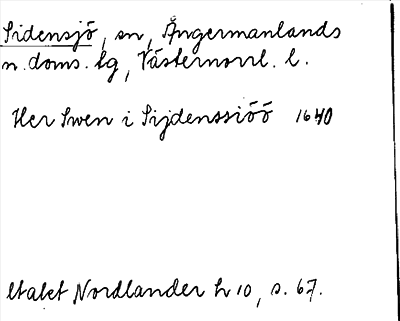 Sidensjö, sn, Ångermanlands
n. doms. lg, Västernorrl. l.
Her Swen i Sijdenssiöö 1640
Nordlander h 10, s. 67.